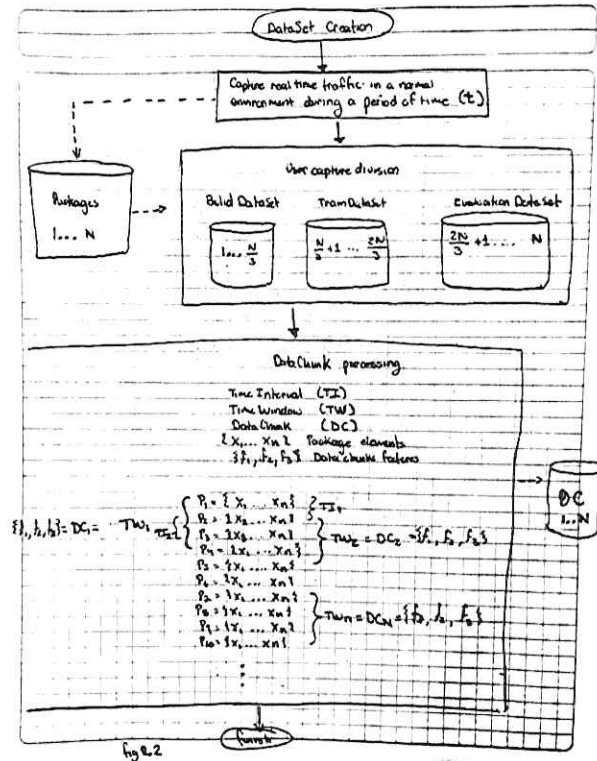 DataSet Creation
Capture real time traffic in a normal
environment during a period of time (t)
Packages
1... N
User capture division
Build DataSet
Train DataSet
Evaluation DataSet
1... N/3
N/3 +1 ... 2N/3
2N/3 +1 .... N
DataChunk processing
Time Interval (TI)
Time Window (TW)
DataChunk (DC)
{x₁... xn} Package elements
{f₁, f₂, f₃} Data chunks features
DC
1...N
{f₁, f₂, f₃} = DC₁ = TW₁
P₁ = {x₁ ... xn}
TI₁
P₂ = {x₁ ... xn}
P₃ = {x₁ ... xn}
TW₂ = DC₂ = {f₁, f₂, f₃}
{x₁ ... xn}
{x₁ ... xn}
{x₁ ... xn}
{x₁ ... xn}
P₈ = {x₁ ... xn}
TWn = DCN =
P₉ = {x₁ ... xn}
P₁₀ = {x₁ ... xn}
finish
fig 2.2